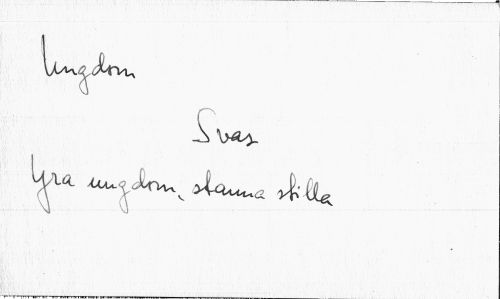 Ungdom
Svar
Yra ungdom, stanna stilla